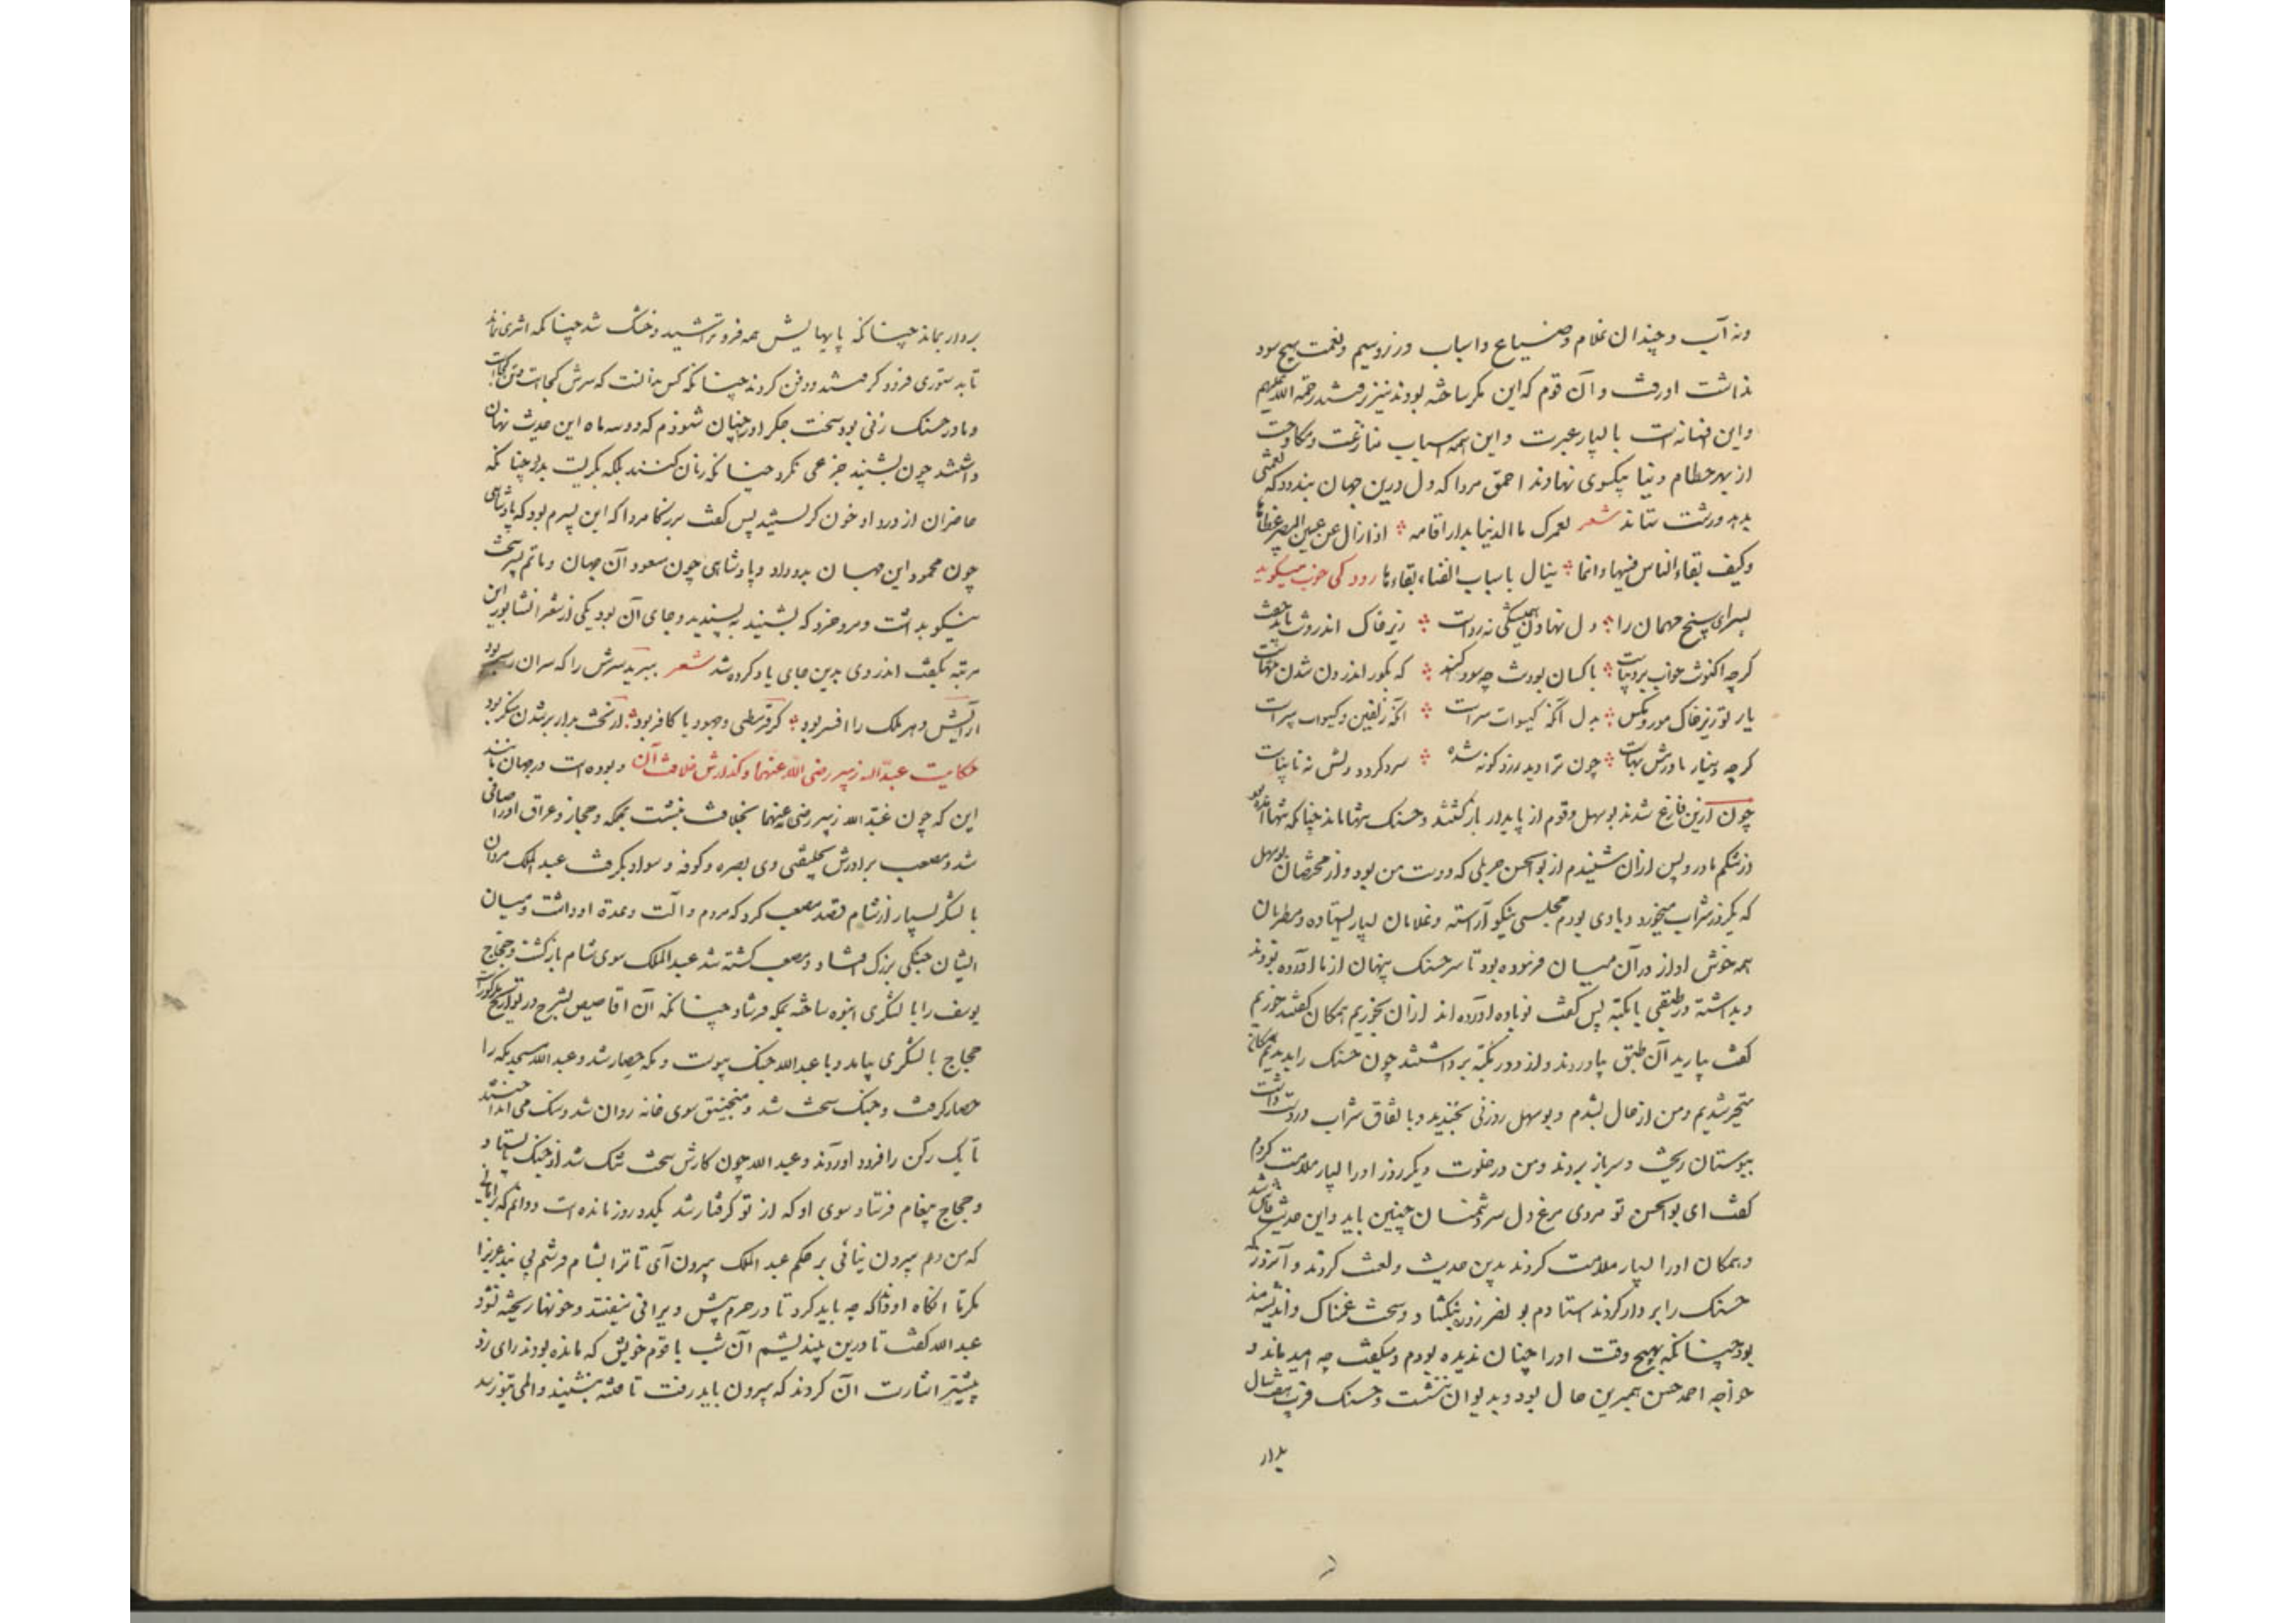 ونه آب و چندان غلام و ضیاع و اسباب و زر و سیم و نعمت هیچ سود
نداشت او رفت و آن قوم که این مکر ساخته بودند نیز رفتند رحمة الله علیهم
و این افسانه‌ایست با بسیار عبرت و این همه اسباب منازعت و مکاوحت
از بهر حطام دنیا بیکسوی نهادند احمق مردا که دل درین جهان بندد که نعمتی
بدهد و زشت ستاند شعر لعمرک ما الدنیا بدار اقامه ؞ اذا زال عن عین البصیر غطاها
وکیف بقاء الناس فیها وانما ؞ ینال باسباب الفناء بقاءها رودکی خوب میگوید
بسرای سپنج مهمان را ؞ دل نهادن همیشگی نه رواست ؞ زیر خاک اندرونت باید خفت
گرچه اکنونت خواب بر دیباست ؞ باکسان بودنت چه سود کند ؞ که بگور اندرون شدن تنهاست
یار تو زیر خاک مور و مگس ؞ بدل آنکه گیسوات پیراست ؞ آنکه زلفین و گیسوات پیراست
گرچه دینار یا درمش بهاست ؞ چون ترا دید زرد گونه شده ؞ سرد گردد دلش نه نابیناست
چون ازین فارغ شدند بوسهل و قوم از پای دار بازگشتند و حسنک تنها ماند چنانکه تنها آمده بود
از شکم مادر و پس ازان شنیدم از بوالحسن حربلی که دوست من بود و از مختصان بوسهل
که یکروز شراب میخورد و با وی بودم مجلسی نیکو آراسته و غلامان بسیار ایستاده و مطربان
همه خوش آواز در آن میان فرموده بود تا سر حسنک پنهان از ما آورده بودند
و بداشته در طبقی با مکبه پس گفت نوباوه آورده‌اند ازان بخوریم همگان گفتند خوریم
گفت بیارید آن طبق بیاوردند و از دور مکبه برداشتند چون حسنک را بدیدیم همگان
متحیر شدیم و من از حال بشدم و بوسهل زوزنی بخندید و باتفاق شراب در دست داشت
ببوستان ریخت و سر باز بردند و من در خلوت دیگر روز او را بسیار ملامت کردم
گفت ای بوالحسن تو مردی مرغ دل سر دشمنان چنین باید و این حدیث فاش شد
و همگان او را بسیار ملامت کردند بدین حدیث و لعنت کردند و آنروز که
حسنک را بر دار کردند استادم بونصر روزه بنگشاد و سخت غمناک و اندیشه‌مند
بود چنانکه بهیچ وقت او را چنان ندیده بودم و میگفت چه امید ماند و
خواجه احمد حسن همبرین حال بود و بدیوان ننشست و حسنک قریب هفت سال
بردار
بر دار بماند چنانکه پایهایش همه فرو تراشید و خشک شد چنانکه اثری نماند
تا بدستوری فرود گرفتند و دفن کردند چنانکه کس ندانست که سرش کجاست و تن کجاست
و مادر حسنک زنی بود سخت جگرآور چنان شنودم که دو سه ماه این حدیث نهان
داشتند چون بشنید جزعی نکرد چنانکه زنان کنند بلکه بگریست بدرد چنانکه
حاضران از درد او خون گریستند پس گفت بزرگا مردا که این پسرم بود که پادشاهی
چون محمود این جهان بدو داد و پادشاهی چون مسعود آن جهان و ماتم پسر سخت
نیکو بداشت و مرد خرد که بشنید به پسندید و جای آن بود یکی از شعرا نشابور این
مرتبه بگفت اندر وی بدین جای یاد کرده شد شعر ببرید سرش را که سران را سر بود
آرایش دهر ملک را افسر بود ؞ گر قرمطی و جهود یا کافر بود ؞ از تخت بدار بر شدن منکر بود
حکایت عبدالله زبیر رضی الله عنهما و گذارش خلافت آن و بوده است در جهان مانند
این که چون عبدالله زبیر رضی الله عنهما بخلافت بنشست بمکه و حجاز و عراق او را صافی
شد و مصعب برادرش بخلیفتی وی بصره و کوفه و سواد بگرفت عبدالملک مروان
با لشکر بسیار از شام قصد مصعب کرد که مردم و آلت و عدة او داشت و میان
ایشان جنگی بزرگ افتاد و مصعب کشته شد عبدالملک سوی شام بازگشت و حجاج
یوسف را با لشکری انبوه ساخته بمکه فرستاد چنانکه آن اقاصیص بشرح در تواریخ مذکورست
حجاج با لشکری بیامد و با عبدالله جنگ پیوست و مکه حصار شد و عبدالله مسجد مکه را
حصار گرفت و جنگ سخت شد و منجنیق سوی خانه روان شد و سنگ می‌انداختند
تا یک رکن را فرود آوردند و عبدالله چون کارش سخت تنگ شد از جنگ بایستاد
و حجاج پیغام فرستاد سوی او که از تو گرفتار شد یکدو روز مانده است و دانم که بر امانی
که من دهم بیرون نیائی بر حکم عبدالملک بیرون آی تا ترا بشام فرستم بی بند عزیزا
مکرما آنگاه او داند که چه باید کرد تا در حرم بیش ویرانی نیفتد و خونها ریخته نشود
عبدالله گفت تا درین بیندیشم آن شب با قوم خویش که مانده بودند رای زد
بیشتر اشارت آن کردند که بیرون باید رفت تا فتنه بنشیند و المی بتو نرسد